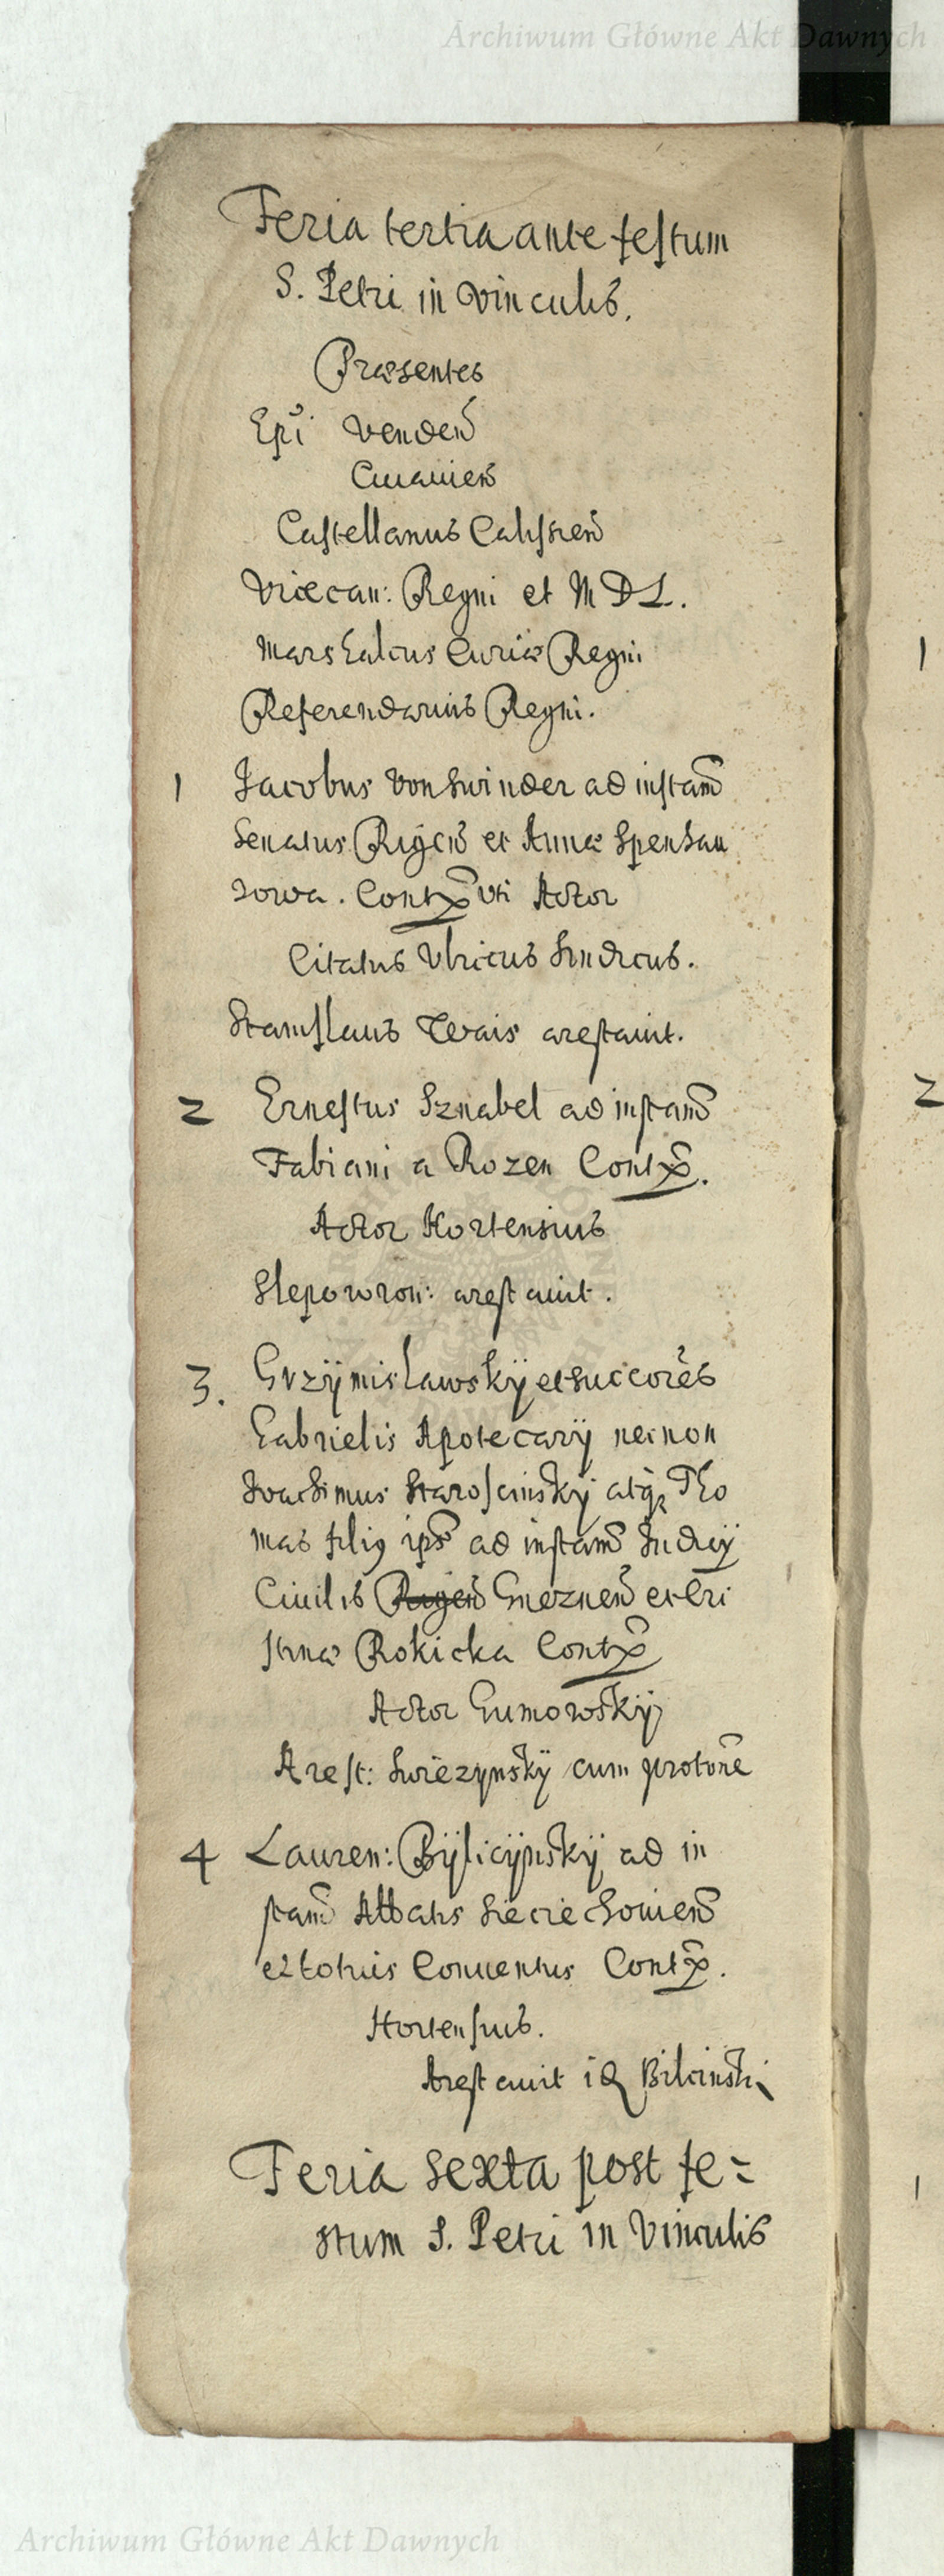 Archiwum Główne Akt Dawnych
Feria tertia ante festum
S. Petri in vinculis.
Præsentes
Epī Venden̄
Cuiauien̄
Castellanus Calissien̄
Vicecan: Regni et M D L.
Marshalcus Curiæ Regni
Referendarius Regni.
1 Jacobus Von Swinder ad instan̄
Senatus Rigen̄ et Annæ
Actor
Citatus Sindicus.
Stanislaus arestauit.
2 Ernestus Sznabel ad instan̄
Fabiani a Rozen
Actor Hortensius
Slepowron: arestauit.
3. Grzÿmislawskÿ et succores
Gabrielis Apotecarÿ necnon
Joachimus Staroscinskÿ atq, Tho
mas filiq ips̄ ad instan̄ Judicÿ
Ciuilis Rigen̄ Gneznen̄ et Cri
stinæ Rokicka
Actor Gumowskÿ
Arest: Swiezynskÿ cum
4 Lauren: ad in
stan̄ Abbatis Sieciechouien̄
et totius Conuentus
Hortensius.
Arestauit Bilcinski
Feria sexta post fe=
stum S. Petri in Vinculis
1
2
1
Archiwum Główne Akt Dawnych